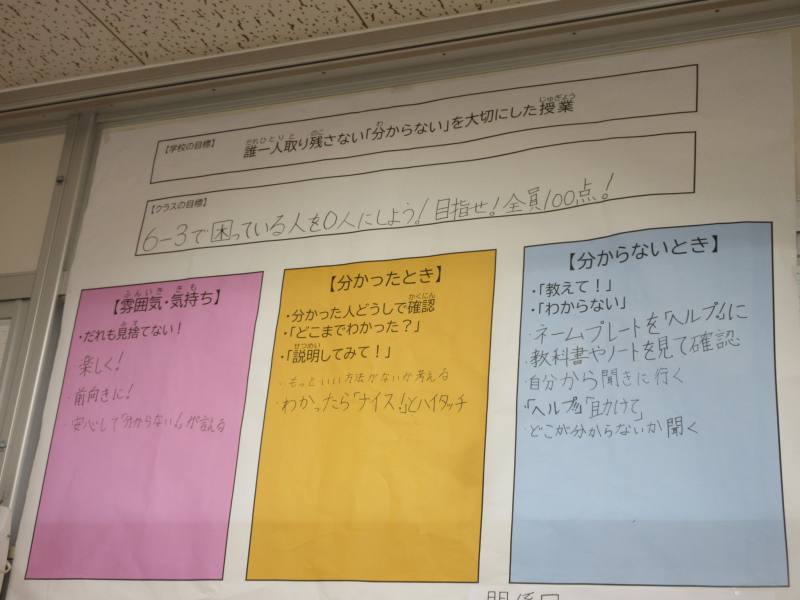 【学校の目標】
誰一人取り残さない「分からない」を大切にした授業
【クラスの目標】
6-3で困っている人を0人にしよう！目指せ！全員100点！
【雰囲気・気持ち】
・だれも見捨てない！
楽しく！
・前向きに！
・安心して「分からない！」が言える
【分かったとき】
・分かった人どうしで確認
・「どこまでわかった？」
・「説明してみて！」
・もっといい方法がないか考える
・わかったら「ナイス！」とハイタッチ
【分からないとき】
・「教えて！」
・「わからない」
・ネームプレートを「ヘルプ！」に
・教科書やノートを見て確認
・自分から聞きに行く
・「ヘルプ」「助けて」
・どこが分からないか聞く